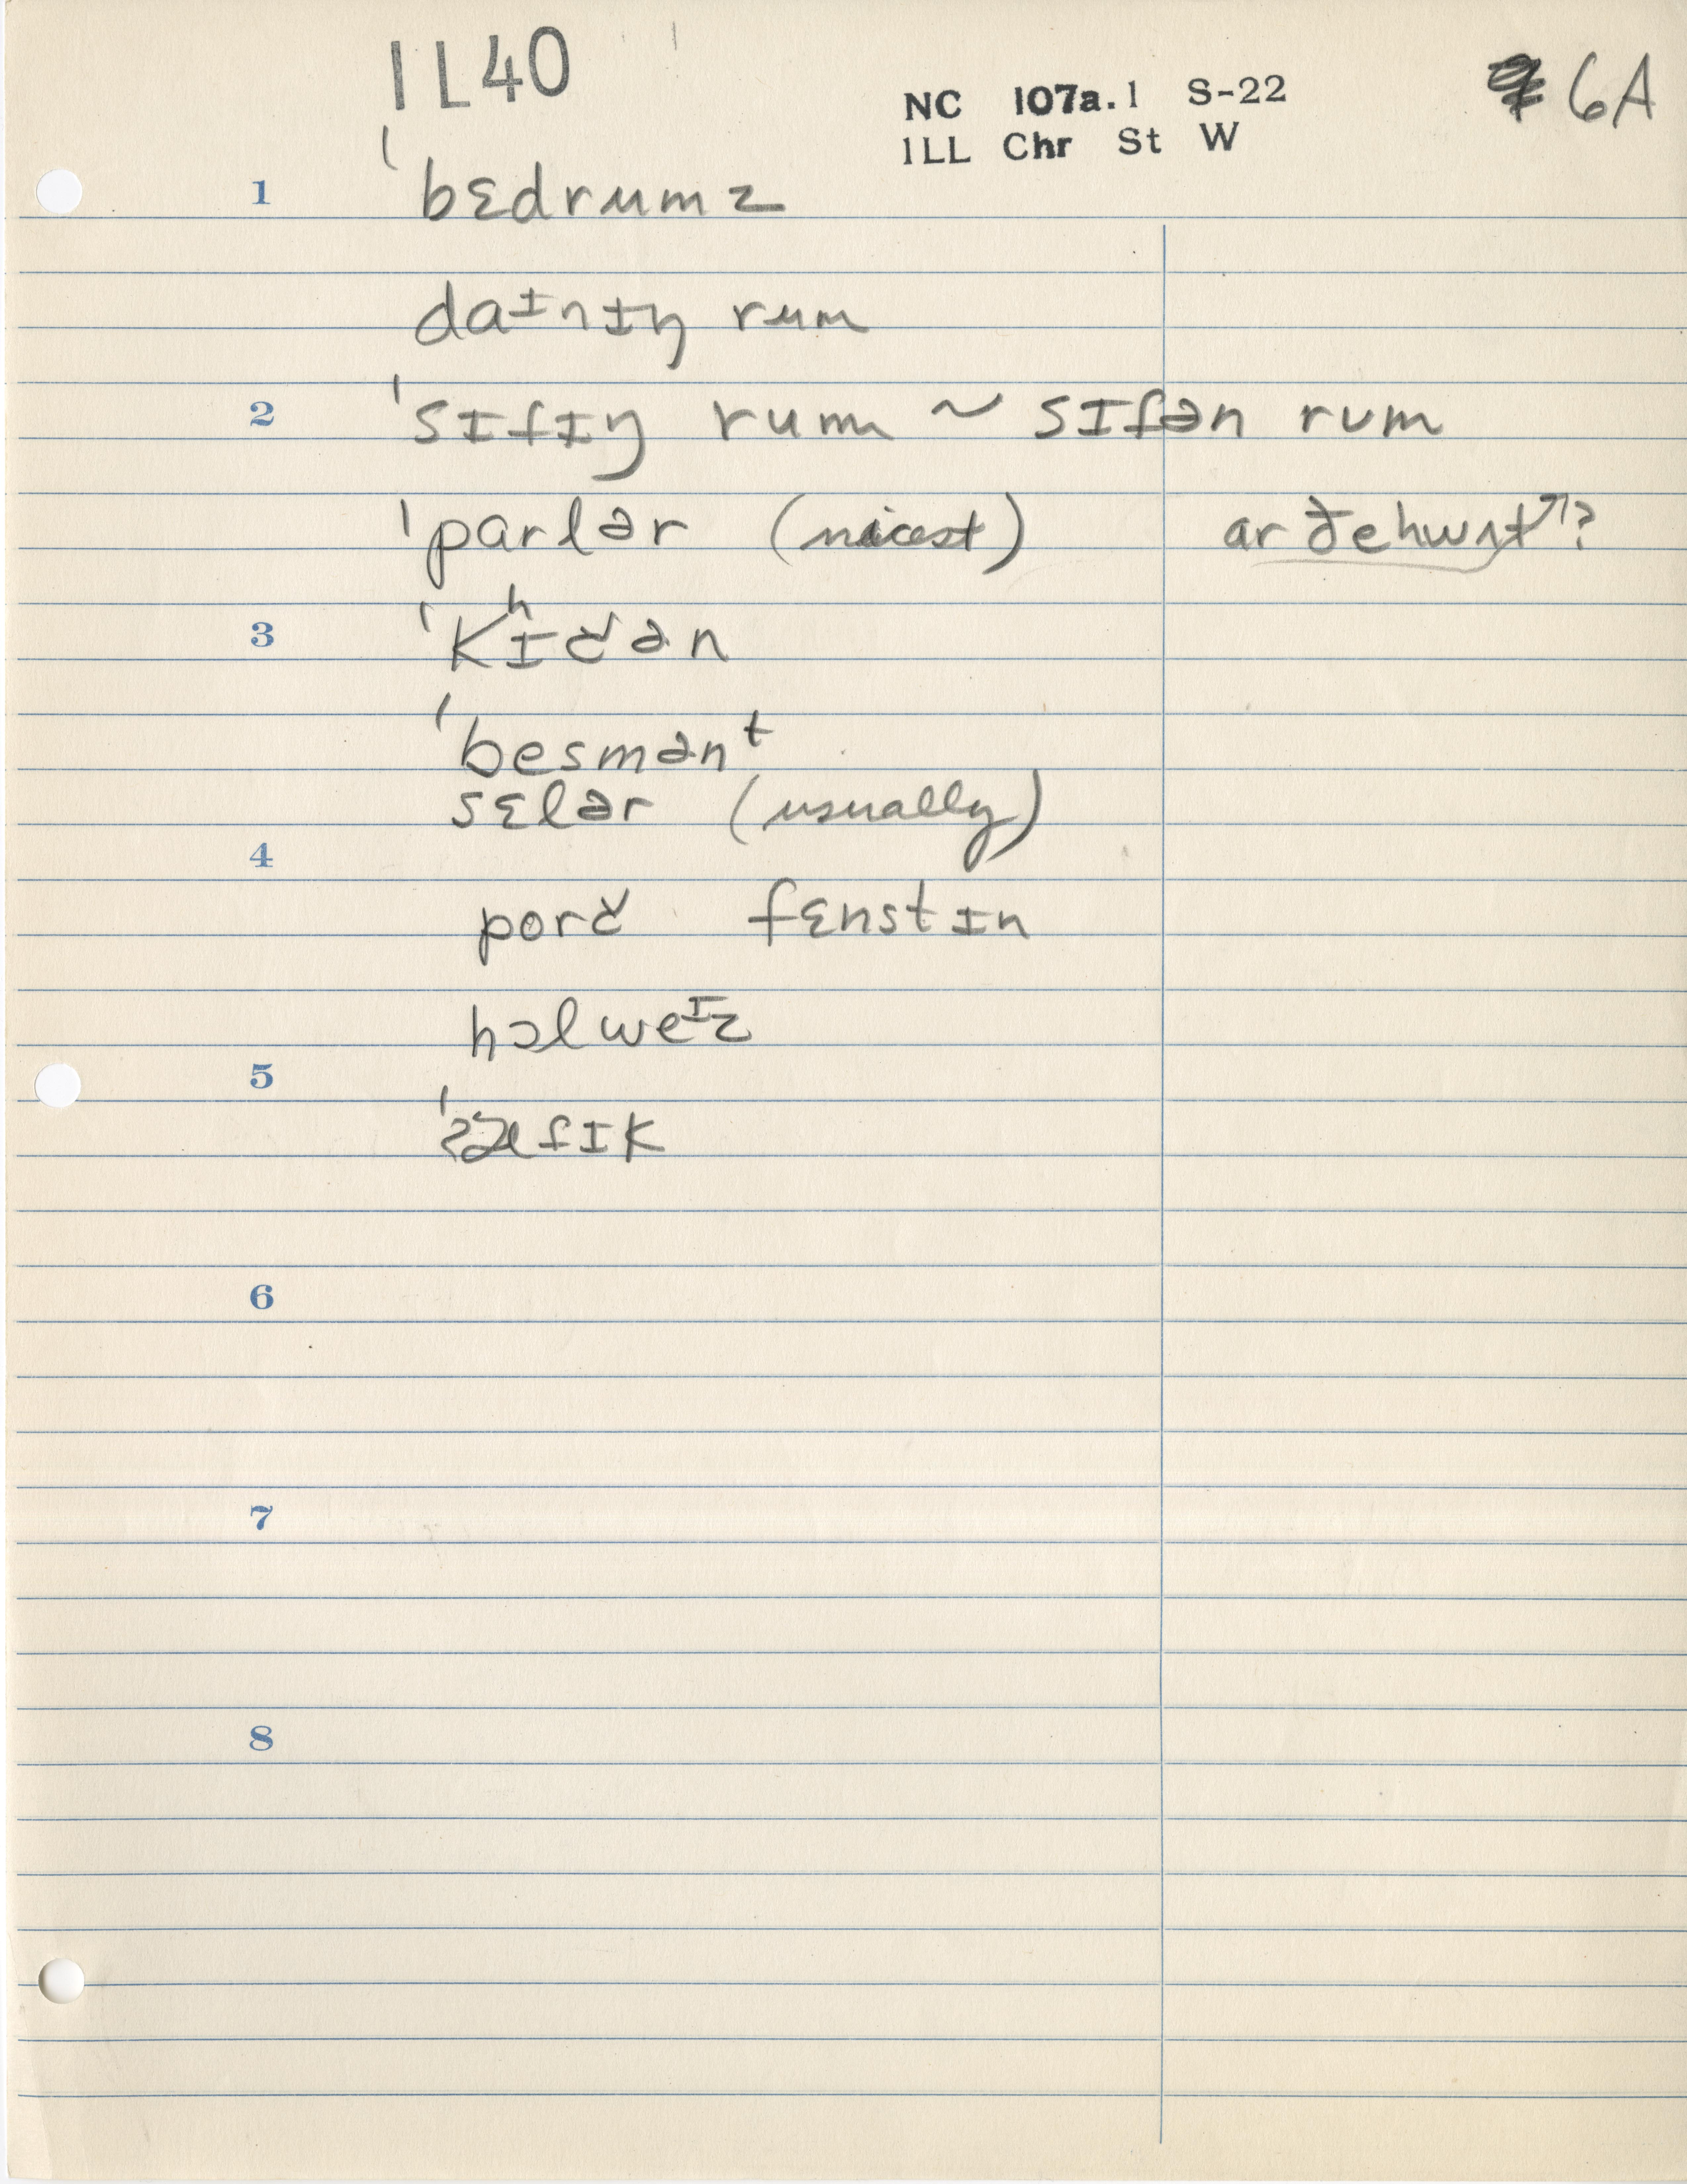 1L40
NC 107a.1 S-22
1LL Chr St W
6A
1 ˈbɛdrumz
daɪnɪŋ rum
2 ˈsɪɾɪŋ rum ~ sɪɾən rum
ˈparlər (nicest)
3 ˈkʰɪčən
ˈbesmənᵗ
sɛlər (usually)
4
porč fɛnst ɪn
hɔlweᴵz
5
6
7
8